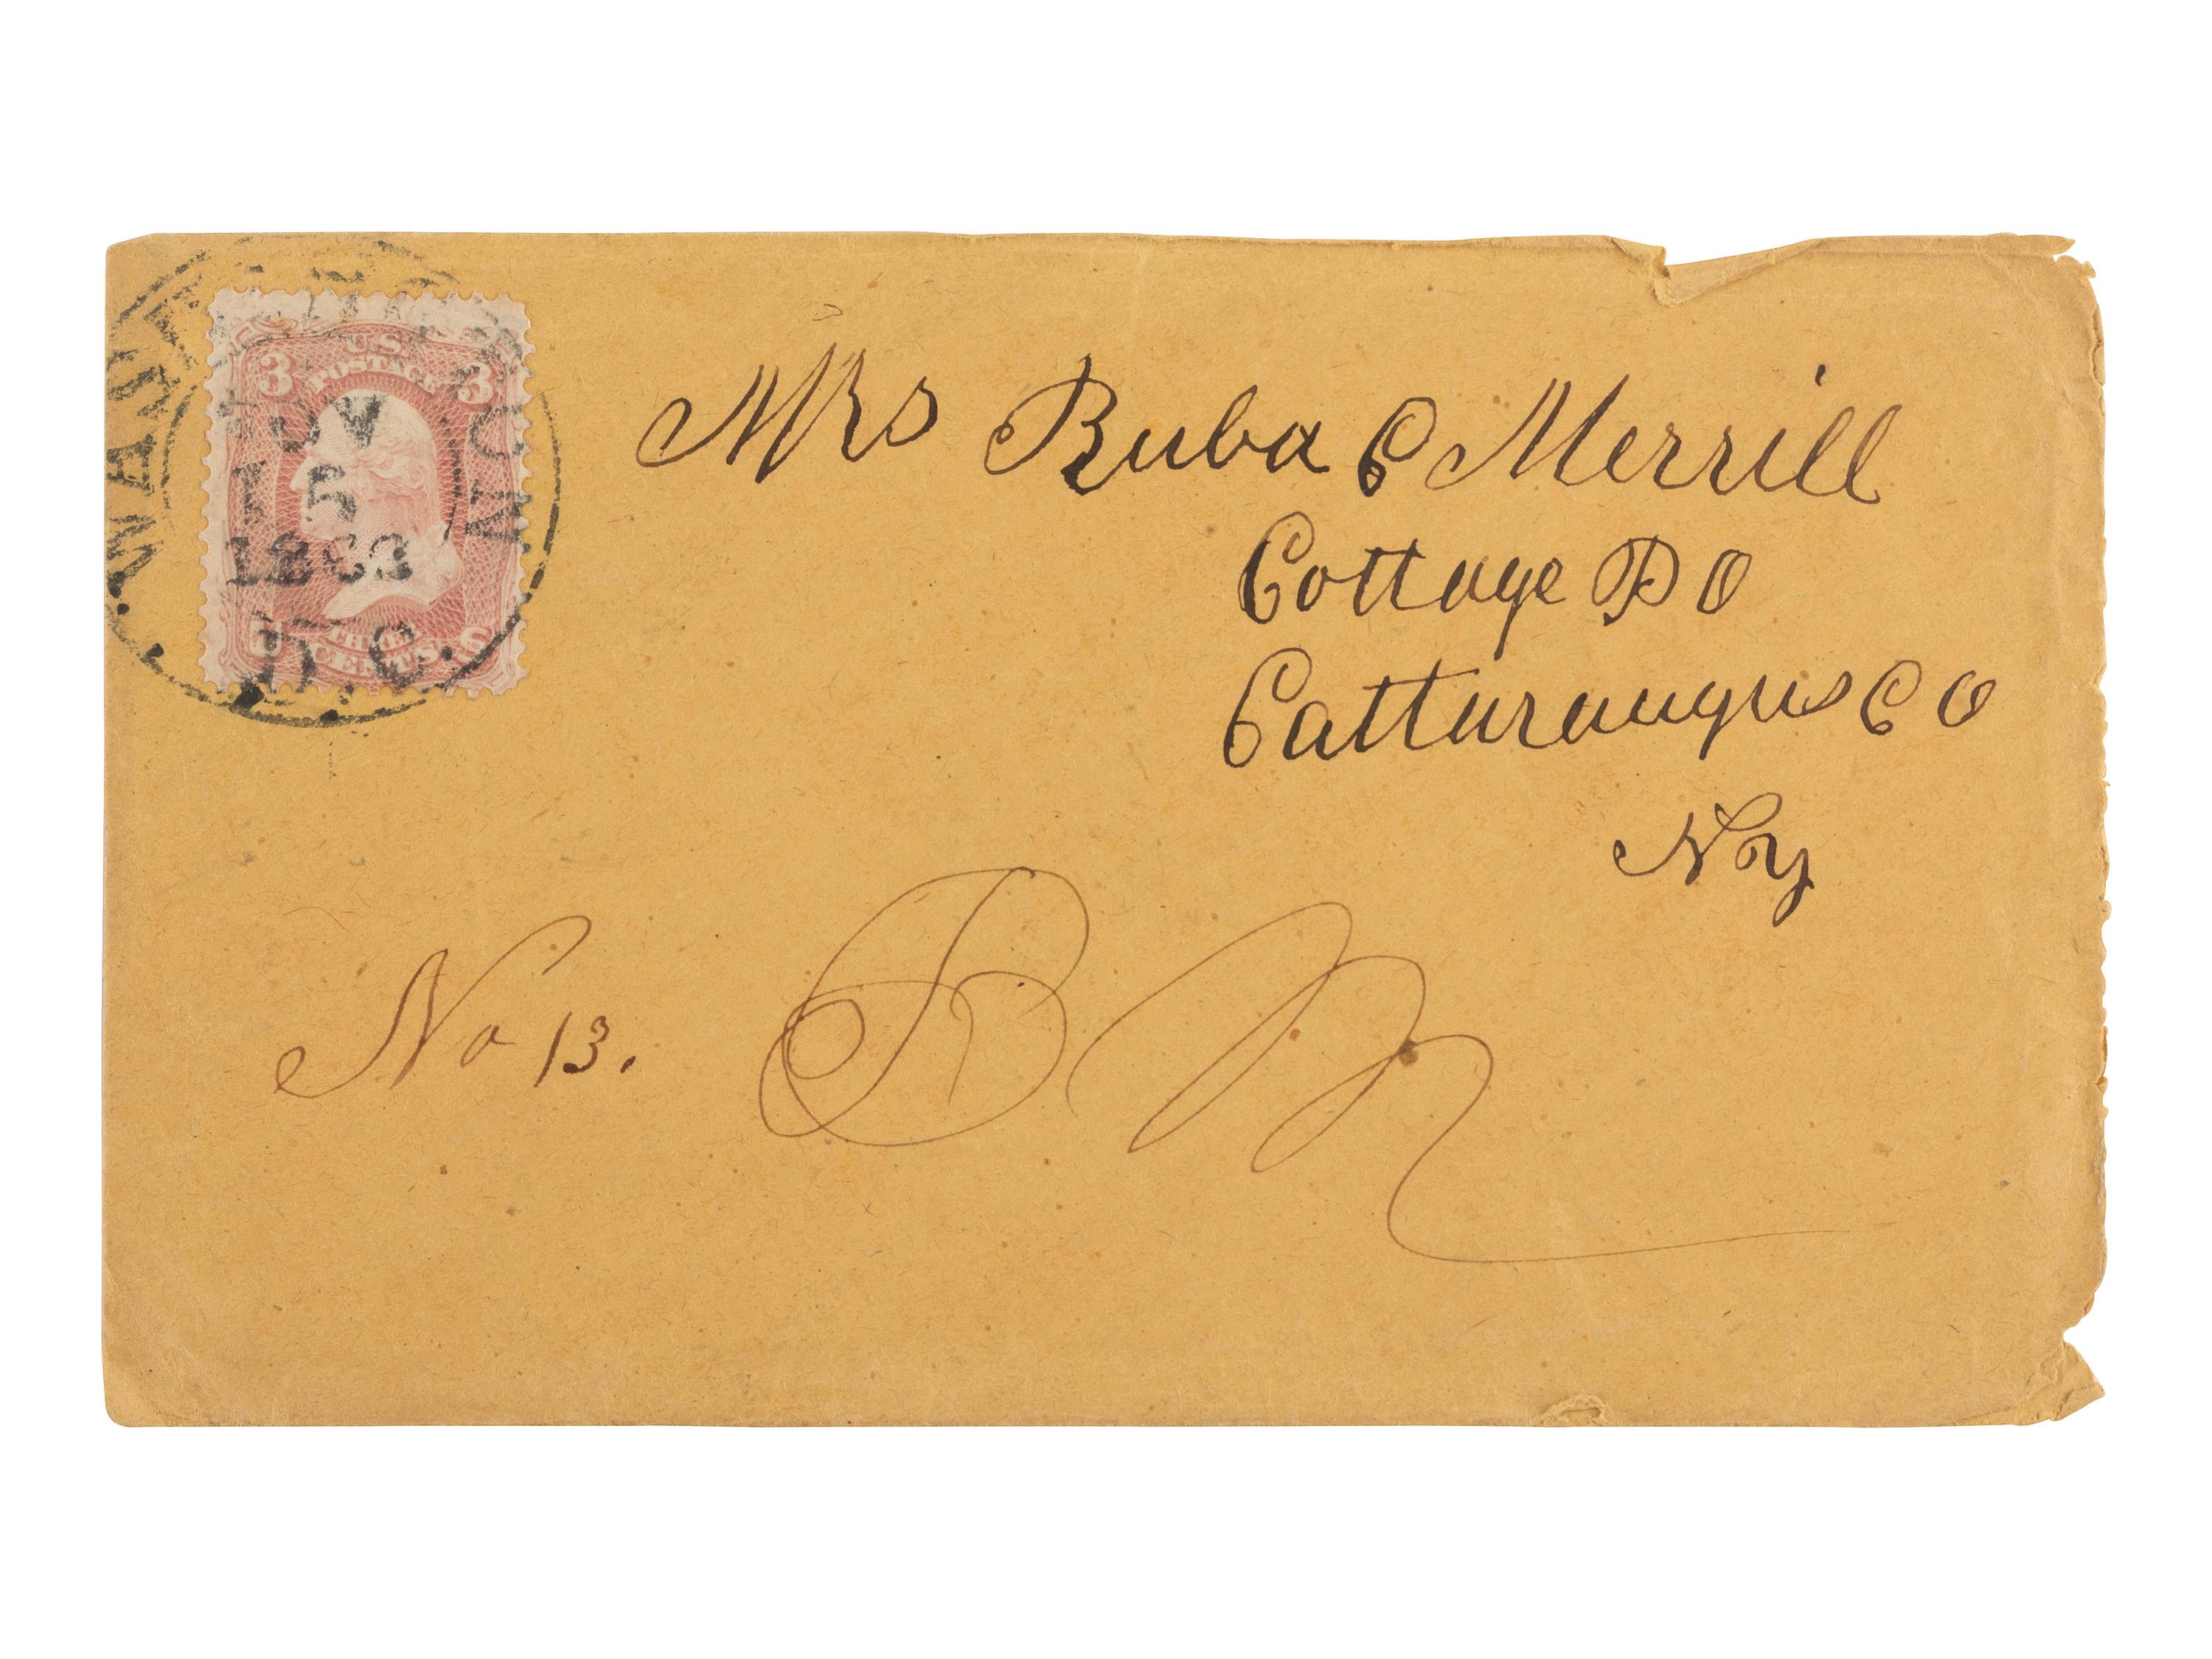 U.S.
POSTAGE
3 3
WASHINGTON
NOV
5
1863
D.C.
THREE
CENTS.
Mrs Ruba C Merrill
Cottage P O
Catturaugus Co
Ny
No 13. R M